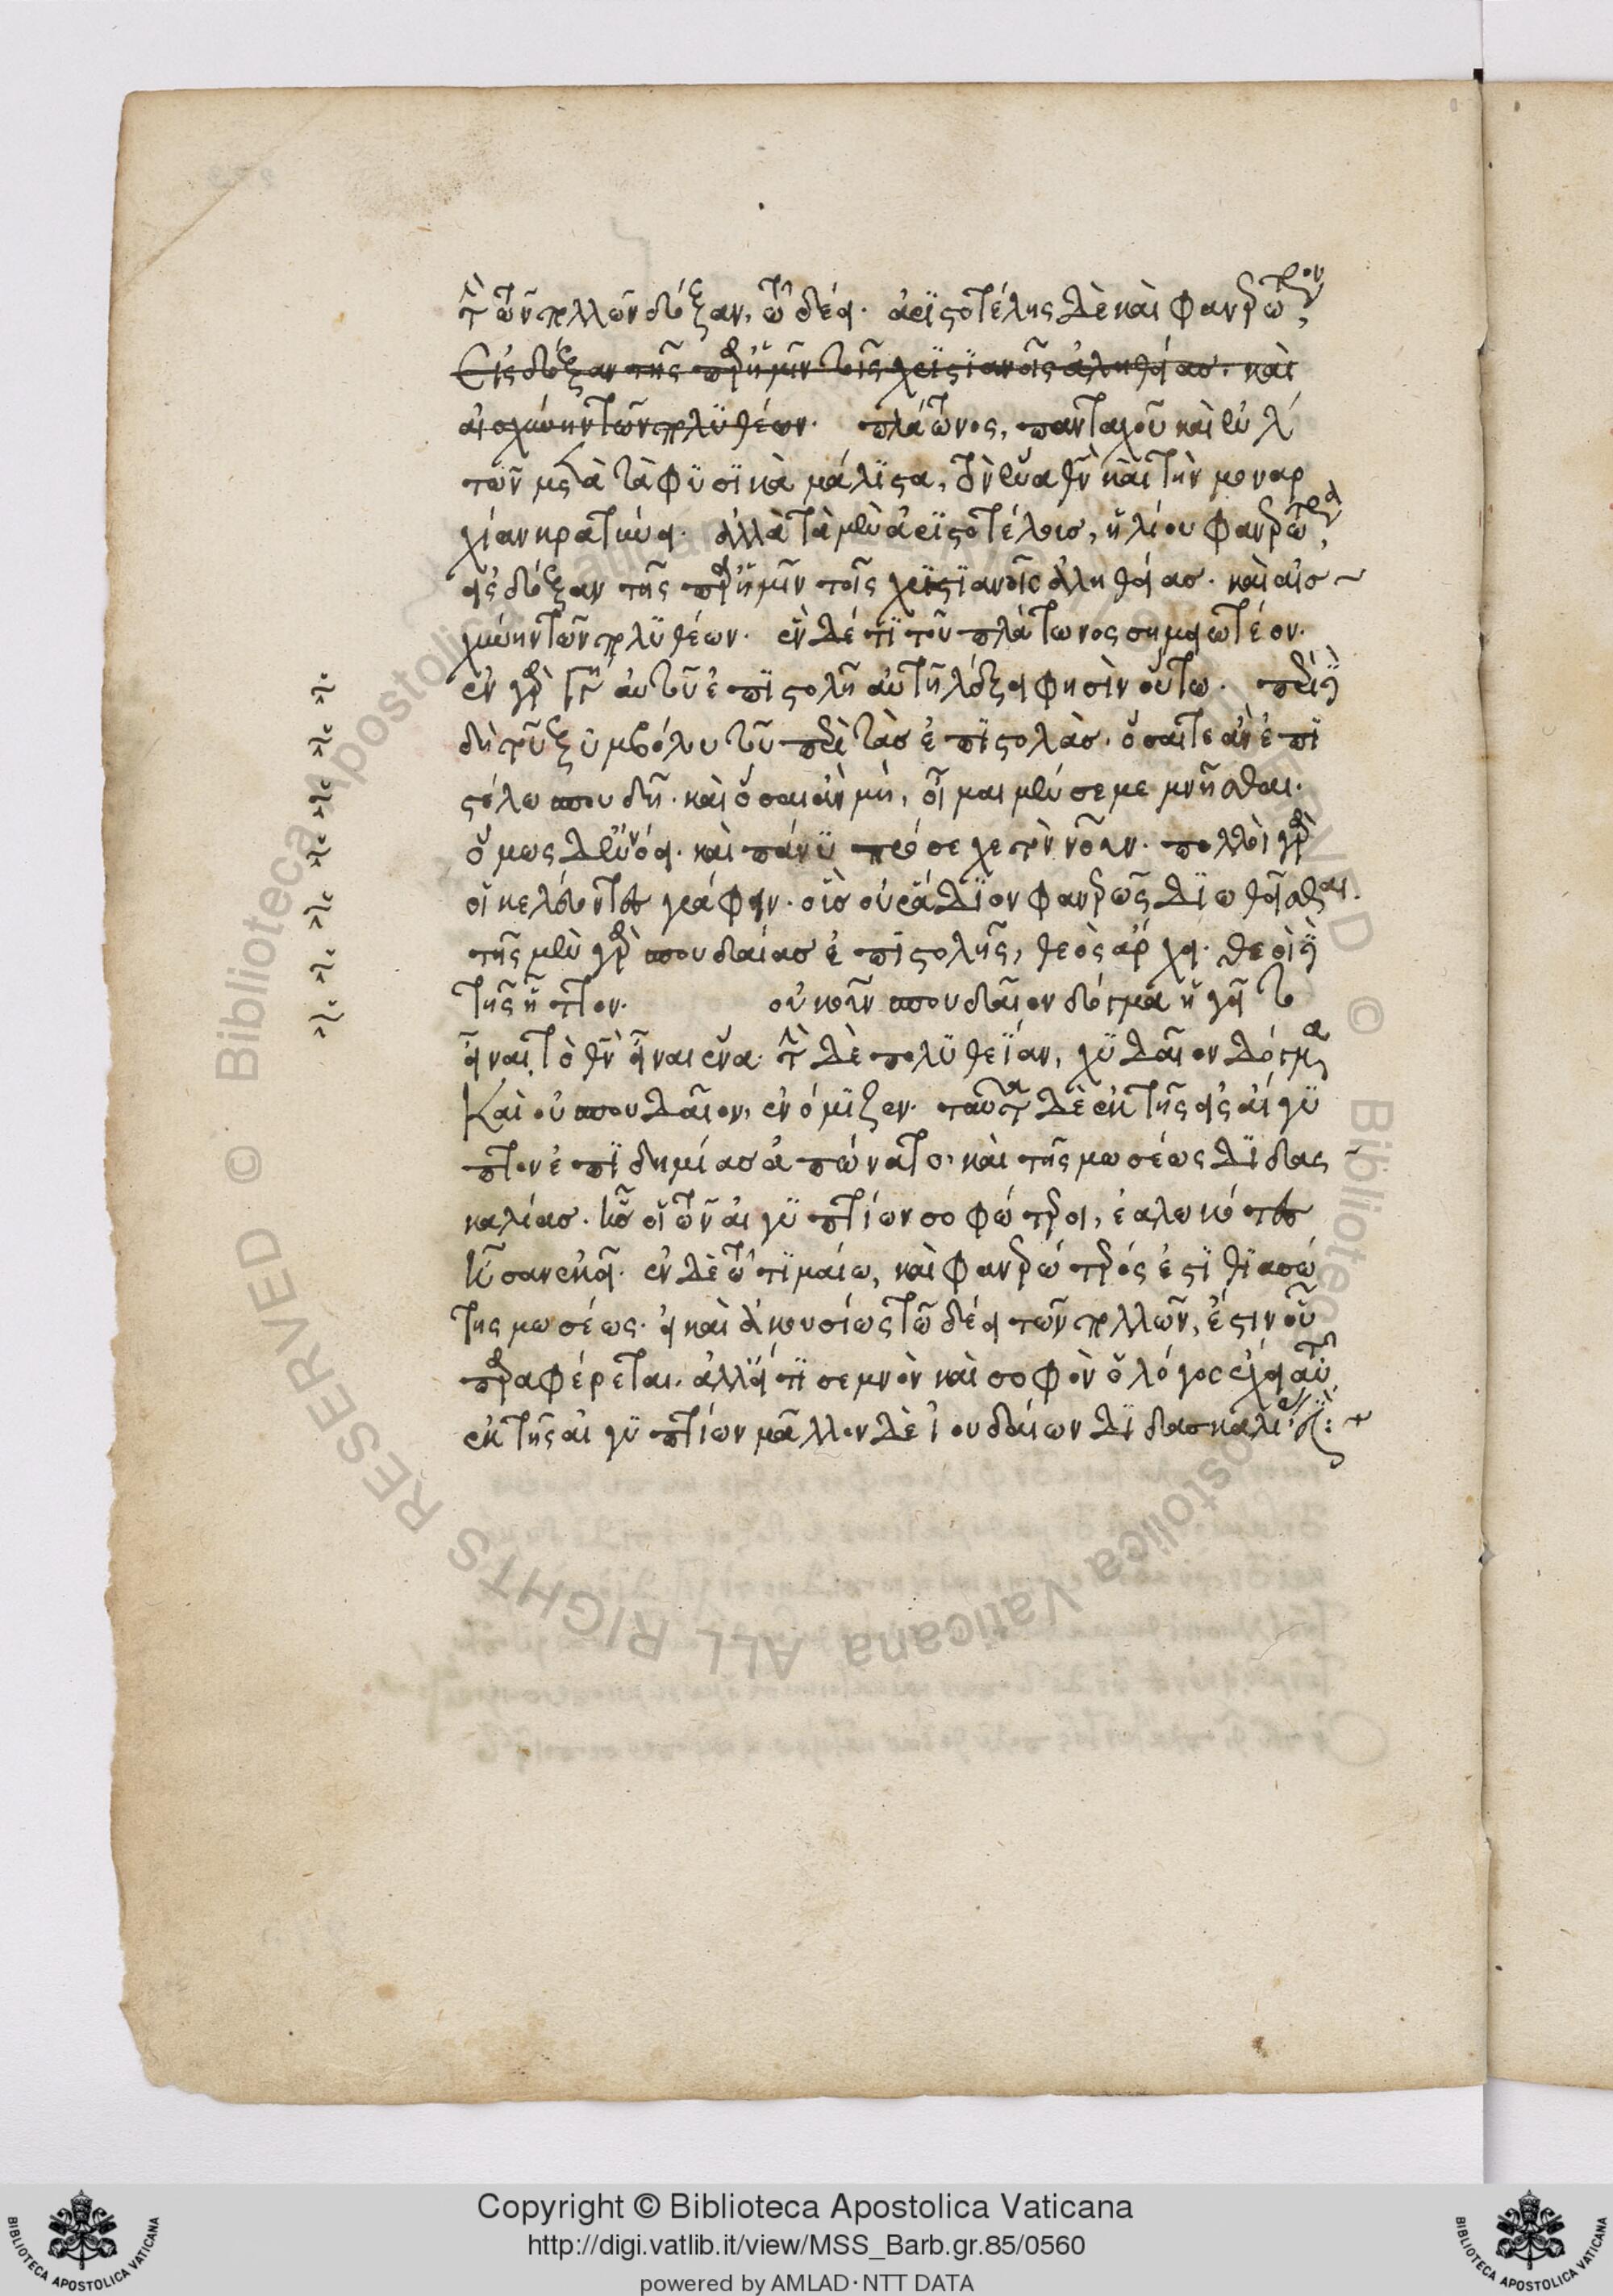 τὴν τῶν πολλῶν δόξαν, τῷ δέει. ἀριστοτέλης δὲ καὶ φανερώτερον
Εἰς δόξαν τῆς παρ' ἡμῖν τοῖς χριστιανοῖς ἀληθείας. καὶ
αἰσχύνην τῶν πολυθέων. πλάτωνος, πανταχοῦ καὶ ἐν λ
τῶν μετὰ τὰ φυσικὰ μάλιστα, τὸν ἕνα θεὸν καὶ τὴν μοναρ
χίαν κρατύνει. ἀλλὰ τὰ μὲν ἀριστοτέλους, ἡλίου φανερώτερα,
εἰς δόξαν τῆς παρ' ἡμῖν τοῖς χριστιανοῖς ἀληθείας. καὶ αἰσ
χύνην τῶν πολυθέων. ἓν δέ τι τοῦ πλάτωνος σημειωτέον.
ἐν γὰρ αὐτοῦ ἐπιστολῇ αὐτῇ λέξει φησὶν οὕτω. περὶ
δὴ τοῦ ξυμβόλου τοῦ περὶ τὰς ἐπιστολὰς. ὅσας τε ἂν ἐπι
στέλλω σπουδῇ. καὶ ὅσας ἂν μή, οἶμαι μέν σε μεμνῆσθαι.
ὅμως δ' ἐννόει. καὶ πάνυ πρόσεχε τὸν νοῦν. πολλοὶ γὰρ
οἱ κελεύοντες γράφειν. οὓς οὐ ῥάδιον φανερῶς διωθεῖσθαι.
τῆς μὲν γὰρ σπουδαίας ἐπιστολῆς, θεὸς ἄρχει. θεοὶ δὲ
τῆς ἧττον. οὐκοῦν σπουδαῖον δόγμα ἡγεῖτο
εἶναι, τὸ θεὸν εἶναι ἕνα. τὴν δὲ πολυθεΐαν, χυδαῖον δόγμα
Καὶ οὐ σπουδαῖον, ἐνόμιζεν. ταῦτα δὲ ἐκ τῆς εἰς αἴγυ
πτον ἐπιδημίας ἀπώνατο. καὶ τῆς μωσέως διδας
καλίας. ἧς οἱ τῶν αἰγυπτίων σοφώτεροι, ἑαλωκότες
ἦσαν ἐκεῖ. ἐν δὲ τῷ τιμαίῳ, καὶ φανερώτερός ἐστι θιασώ
της μωσέως. εἰ καὶ ἀκουσίως τῷ δέει τῶν πολλῶν, ἔστιν οὗ
παραφέρεται. ἀλλ' εἴ τι σεμνὸν καὶ σοφὸν ὁ λόγος ἔχει αὐτῷ,
ἐκ τῆς αἰγυπτίων μᾶλλον δὲ ἰουδαίων διδασκαλίας
Copyright © Biblioteca Apostolica Vaticana
http://digi.vatlib.it/view/MSS_Barb.gr.85/0560
powered by AMLAD · NTT DATA